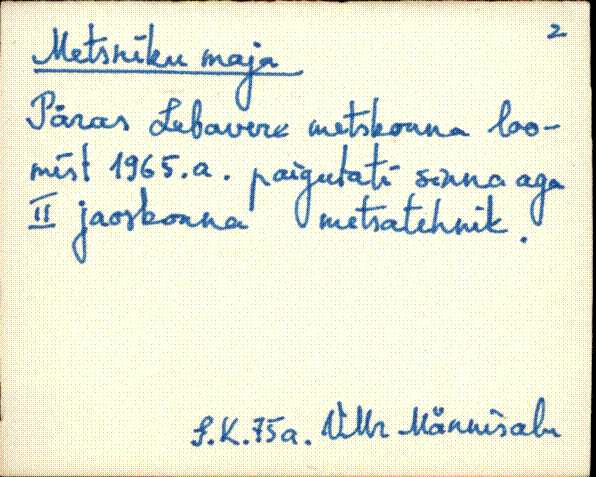 2
Metsniku maja
Päras Lebavere metskonna loo-
mist 1965.a. paigutati sinna aga
II jaoskonna metsatehnik.
S.K. 75a. Männisalu